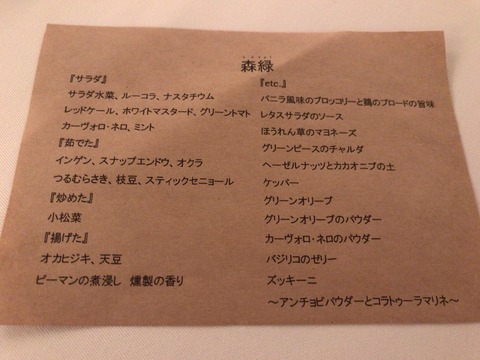 森緑
『サラダ』
サラダ水菜、ルーコラ、ナスタチウム
レッドケール、ホワイトマスタード、グリーントマト
カーヴォロ・ネロ、ミント
『茹でた』
インゲン、スナップエンドウ、オクラ
つるむらさき、枝豆、スティックセニョール
『炒めた』
小松菜
『揚げた』
オカヒジキ、天豆
ピーマンの煮浸し 燻製の香り
『etc.』
バニラ風味のブロッコリーと鶏のブロードの旨味
レタスサラダのソース
ほうれん草のマヨネーズ
グリーンピースのチャルダ
ヘーゼルナッツとカカオニブの土
ケッパー
グリーンオリーブ
グリーンオリーブのパウダー
カーヴォロ・ネロのパウダー
バジリコのゼリー
ズッキーニ
～アンチョビパウダーとコラトゥーラマリネ～